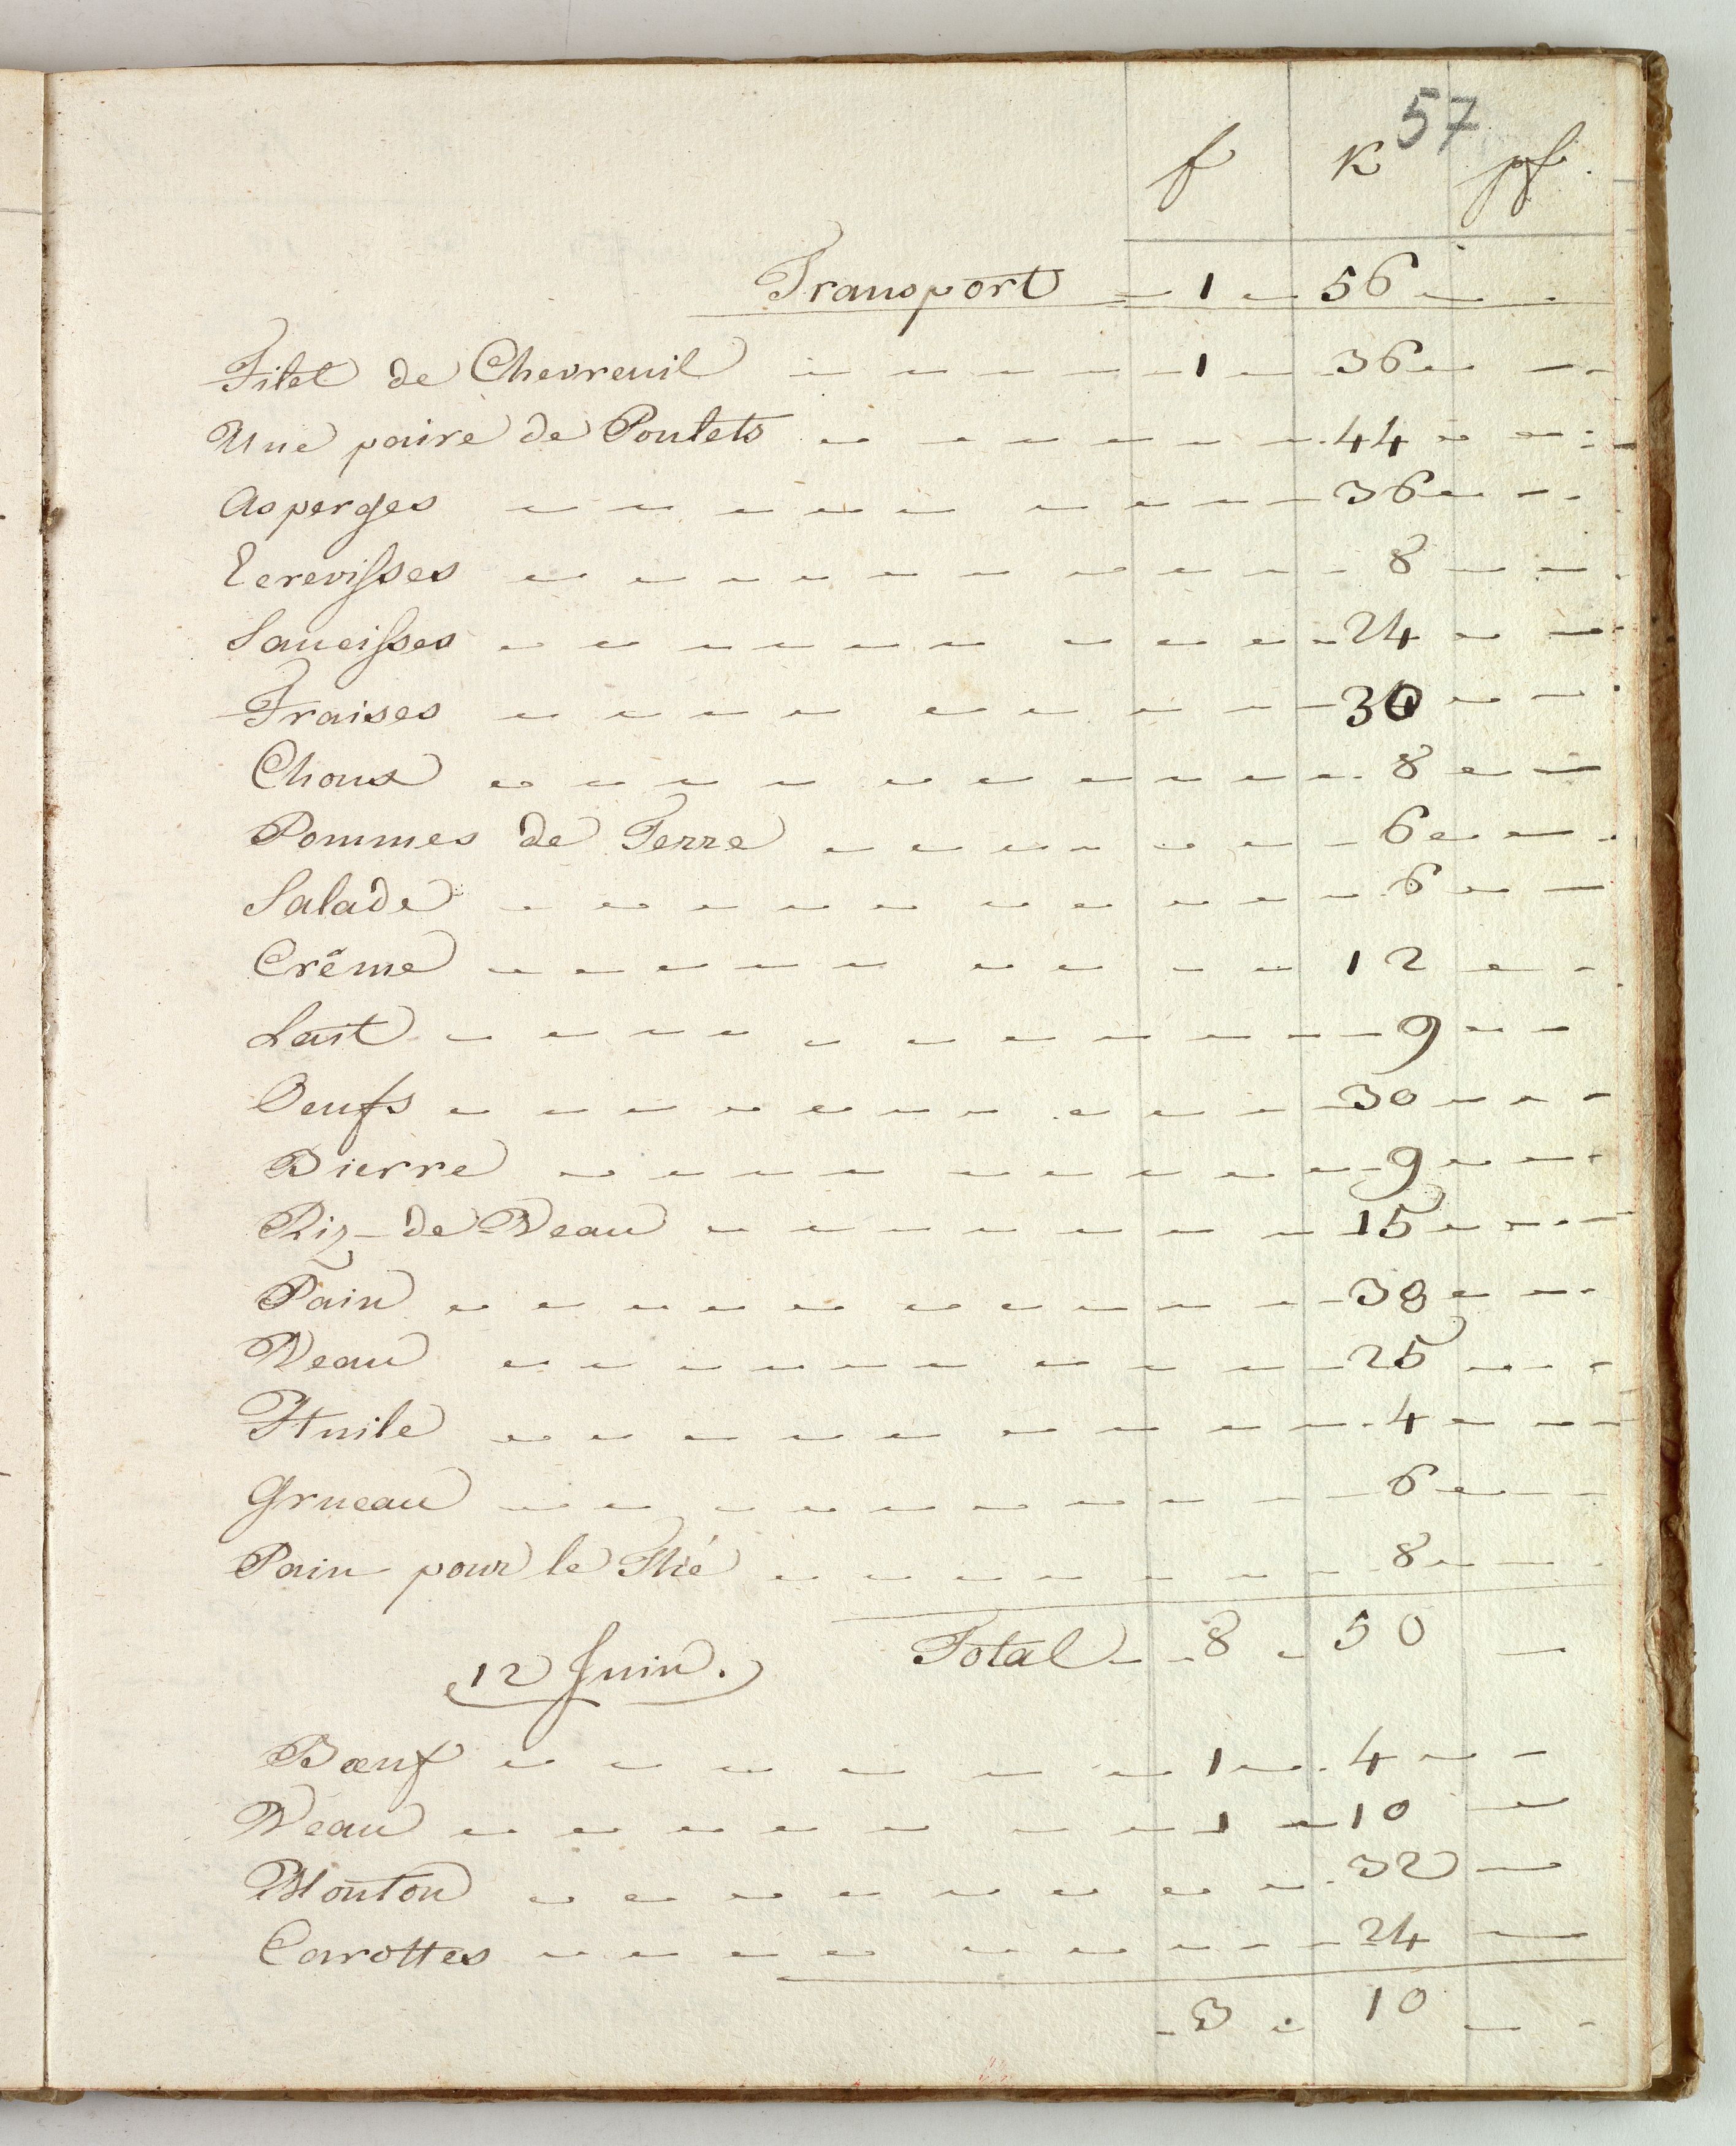 57
f K pf.
Transport 1 56
Filet de Chevreuil 1 36
Une paire de Poulets 44
Asperges 36
Ecrevisses 8
Saucisses 24
Fraises 30
Choux 8
Pommes de Terre 6
Salade 6
Crême 12
Lait 9
Oeufs 30
Bierre 9
Riz-de-Veau 15
Pain 38
Veau 25
Huile 4
Grueau 6
Pain pour le Thé 8
Total 8 50
12 Juin.
Bœuf 1 4
Veau 1 10
Mouton 32
Carottes 24
3 10